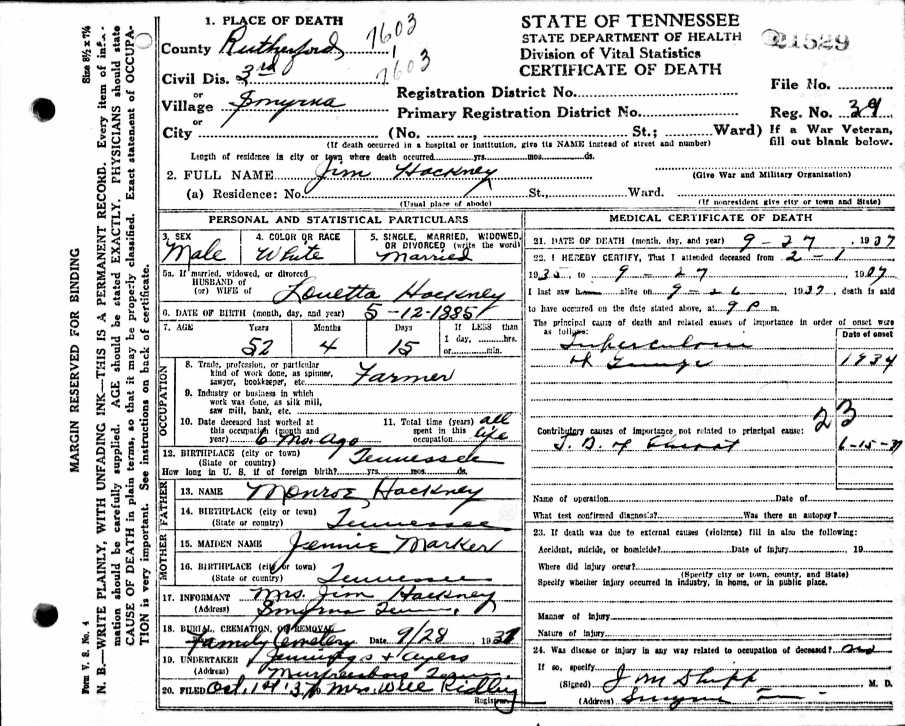 1. PLACE OF DEATH
County Rutherford 1
7603
Civil Dis. 3rd
7603
or
Village Smyrna
or
City (No. , St.; Ward)
STATE OF TENNESSEE
STATE DEPARTMENT OF HEALTH
Division of Vital Statistics
CERTIFICATE OF DEATH
21529
File No.
Registration District No.
Primary Registration District No.
Reg. No. 39
If a War Veteran,
fill out blank below.
(If death occurred in a hospital or institution, give its NAME instead of street and number)
Length of residence in city or town where death occurred yrs. mos. ds.
2. FULL NAME Jim Hackney
(Give War and Military Organization)
(a) Residence: No. St., Ward.
(Usual place of abode)
(If nonresident give city or town and State)
PERSONAL AND STATISTICAL PARTICULARS
3. SEX
Male
4. COLOR OR RACE
White
5. SINGLE, MARRIED, WIDOWED,
OR DIVORCED (write the word)
Married
5a. If married, widowed, or divorced
HUSBAND OF
(or) WIFE OF Louetta Hackney
6. DATE OF BIRTH (month, day, and year) 5-12-1885
7. AGE Years Months Days If LESS than
1 day, hrs.
or min.
52 4 15
OCCUPATION
8. Trade, profession, or particular
kind of work done, as spinner,
sawyer, bookkeeper, etc. Farmer
9. Industry or business in which
work was done, as silk mill,
saw mill, bank, etc.
10. Date deceased last worked at
this occupation (month and
year) 6 Mo. Ago
11. Total time (years)
spent in this
occupation all life
12. BIRTHPLACE (city or town)
(State or country) Tennessee
How long in U. S. if of foreign birth? yrs. mos. ds.
FATHER
13. NAME Monroe Hackney
14. BIRTHPLACE (city or town)
(State or country) Tennessee
MOTHER
15. MAIDEN NAME Jennie Marker
16. BIRTHPLACE (city or town)
(State or country) Tennessee
17. INFORMANT Mrs. Jim Hackney
(Address) Smyrna Tenn.
18. BURIAL, CREMATION, OR REMOVAL
Family Cemetery Date 9/28 1937
19. UNDERTAKER Jennings & Ayers
(Address) Murfreesboro Tenn.
20. FILED Oct. 1st '37 Mrs. Will Ridley
Registrar
MEDICAL CERTIFICATE OF DEATH
21. DATE OF DEATH (month, day, and year) 9-27, 1937
22. I HEREBY CERTIFY, That I attended deceased from 2-1
1935, to 9-27 1937
I last saw h alive on 9-26 1937, death is said
to have occurred on the date stated above, at 9 P m.
The principal cause of death and related causes of importance in order of onset were
as follows:
Date of onset
1934
23
Contributory causes of importance not related to principal cause:
T. B. of Throat 6-15-37
Name of operation Date of
What test confirmed diagnosis? Was there an autopsy?
23. If death was due to external causes (violence) fill in also the following:
Accident, suicide, or homicide? Date of injury 19
Where did injury occur?
(Specify city or town, county, and State)
Specify whether injury occurred in industry, in home, or in public place.
Manner of injury
Nature of injury
24. Was disease or injury in any way related to occupation of deceased? no
If so, specify
(Signed) M. D.
(Address) Smyrna
MARGIN RESERVED FOR BINDING
Size 8½ x 7¼
Form V. S. No. 4
N. B.—WRITE PLAINLY, WITH UNFADING INK—THIS IS A PERMANENT RECORD. Every item of infor-
mation should be carefully supplied. AGE should be stated EXACTLY. PHYSICIANS should state
CAUSE OF DEATH in plain terms, so that it may be properly classified. Exact statement of OCCUPA-
TION is very important. See instructions on back of certificate.